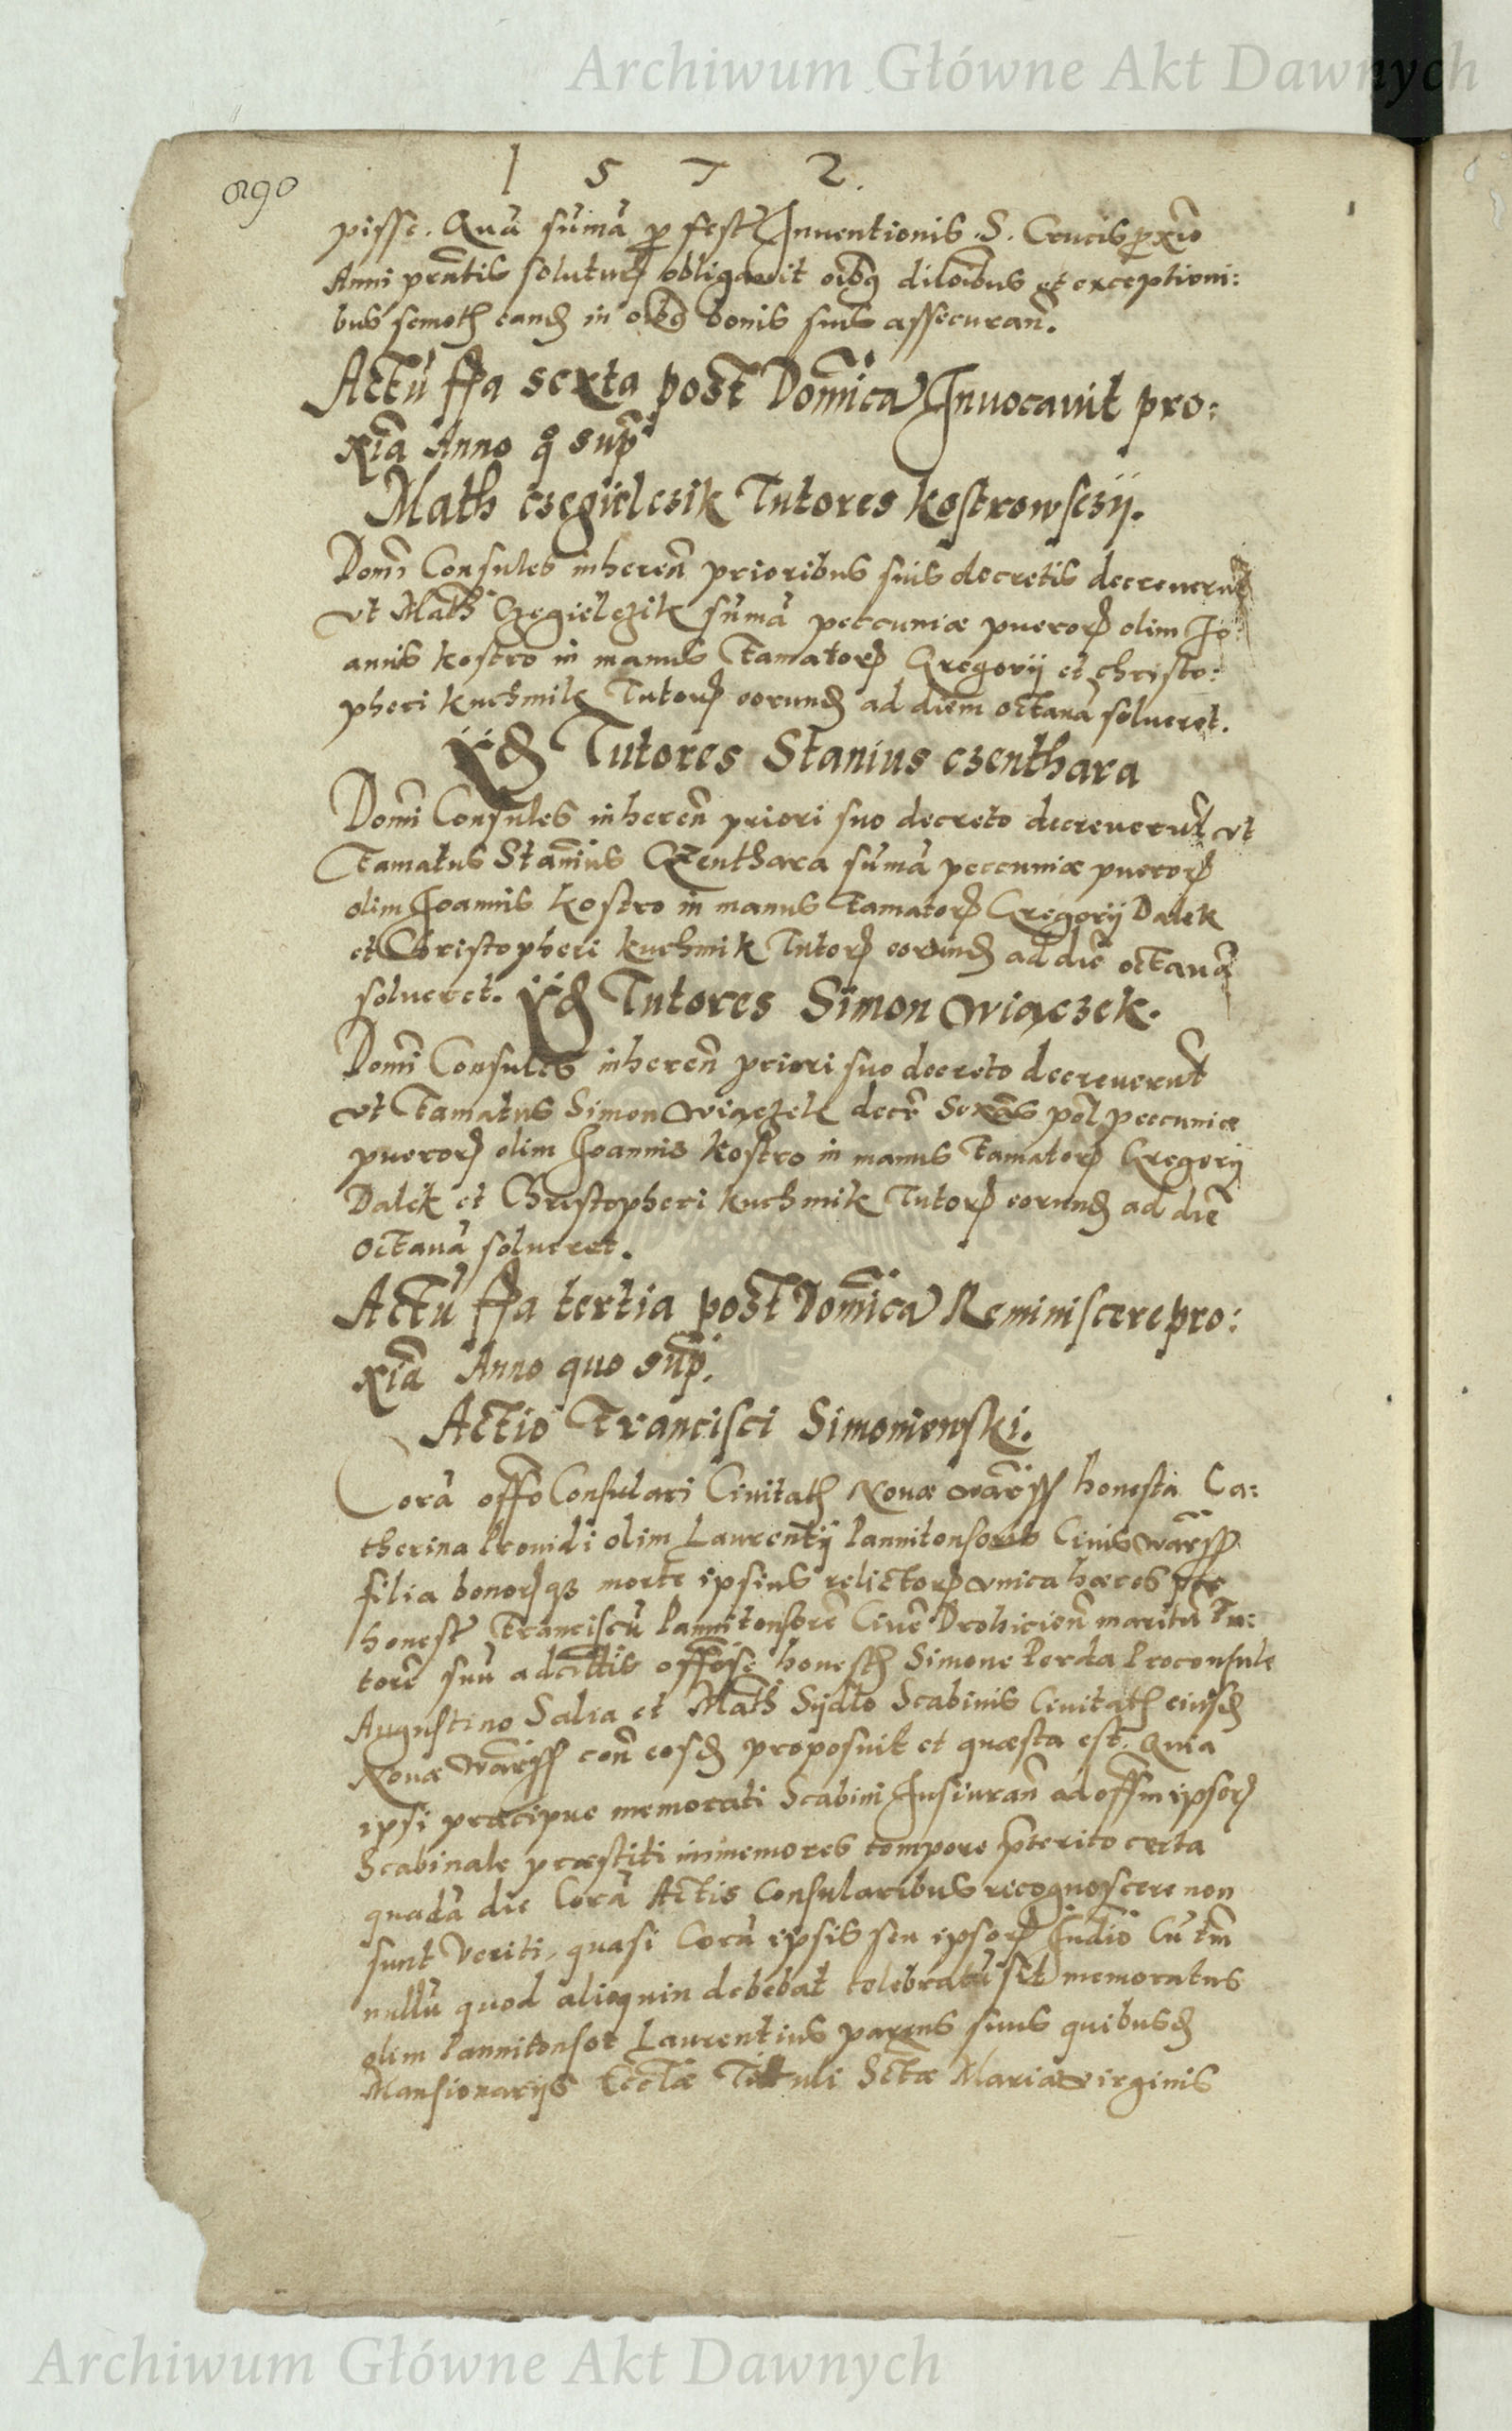 Archiwum Główne Akt Dawnych
1 5 7 2.
290
pisse. Quā sumā p fest Inuentionis .S. Crucis proxīo
Anni prntis soluturꝫ obligauit oibꝫ diloibus et exceptioni:
bus semotꝫ eandꝫ in oibꝫ bonis suis assecuran̄.
Actū ffia sexta post Domīca Inuocauit pro:
xīa Anno q̊ sup̄
Math czegielczik Tutores kostrowsczij.
Dom̄i Consules inheren̄ prioribus suis decretis decreuerūt
vt Math Czegielczik sumā peccuniæ puerorꝫ olim Jo:
annis kostro in manus famatorꝫ Gregorij et Christo:
pheri kuchmik Tutorꝫ eorundꝫ ad diem octauā solueret.
ijdꝫ Tutores Stanius czenthara
Dom̄i Consules inheren̄ priori suo decreto decreuerūt vt
famatus Stanius Czenthara sumā peccuniæ puerorꝫ
olim Joannis kostro in manus famatorꝫ Gregorij Dalek
et Christopheri kuchmik Tutorꝫ eorundꝫ ad diē octauā
solueret. ijdꝫ Tutores Simon wiączek.
Dom̄i Consules inheren̄ priori suo decreto decreuerūt
vt famatus Simon wiączek decē sexās pol peccuniæ
puerorꝫ olim Joannis kostro in manus famatorꝫ Gregorij
Dalek et Christopheri kuchmik Tutorꝫ eorundꝫ ad diē
octauā solueret.
Actū ffia tertia post Domīca Reminiscere pro:
xīa Anno quo sup̄.
Actio Francisci Simoniewski.
Corā offo Consulari Ciuitatꝫ Nouæ warss honesta Ca:
therina Prouidi olim Laurentij Pannitonsoris Ciuis warss
filia bonorꝫqꝫ morte ipsius relictorꝫ vnica hæres per
honest Franciscū Pannitonsorē Ciuē Drohicien̄ maritū Tu:
torē suū adcitis offose honestꝫ Simone Porda Proconsule
Augustino Salia et Math Sijdło Scabinis Ciuitatꝫ eiusdꝫ
Nouæ warss con̄ eosdꝫ proposuit et quæsta est. Quia
ipsi præcipue memorati Scabini Jusiuran̄ ad offm ipsorꝫ
Scabinale præstiti immemores tempore p̄terito certa
quadā die Corā Actis Consularibus recognoscere non
sunt veriti, quasi Corā ipsis seu ipsorꝫ Judio Cū tm̄
nullū quod alioquin debebat celebratū sit memoratus
olim Pannitonsor Laurentius parens suus quibusdꝫ
Mansionarijs Ecclæ Tituli Sctæ Mariæ virginis
Archiwum Główne Akt Dawnych